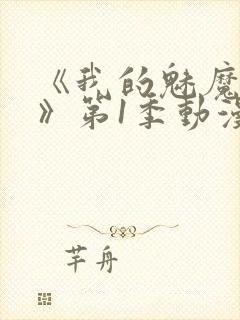 《我的魅魔
》第1季動漫
芊舟